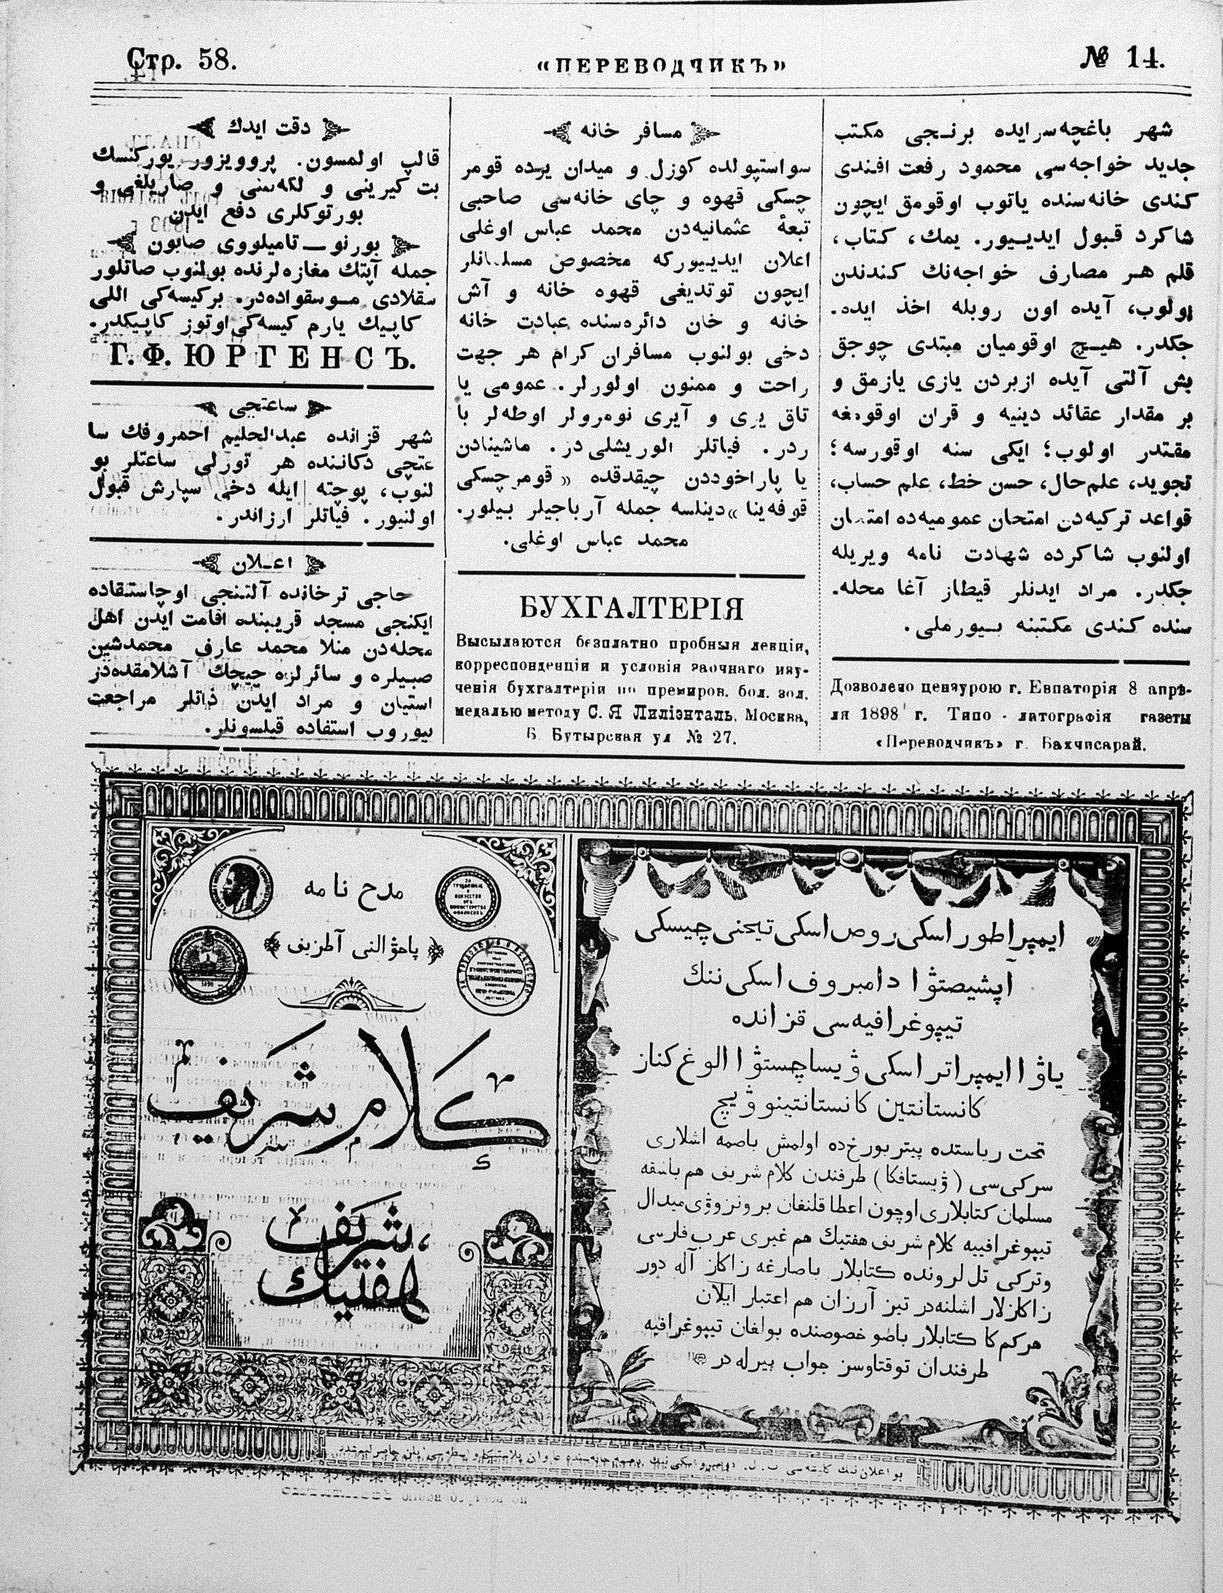 Стр. 58.
«ПЕРЕВОДЧИКЪ»
№ 14.
شهر باغچه‌سرایده برنجی مکتب
جدید خواجه‌سی محمود رفعت افندی
کندی خانه‌سنده یاتوب اوقومق ایچون
شاکرد قبول ایدییور. یمك، کتاب،
قلم هر مصارف خواجه‌نك کندندن
اولوب، آیده اون روبله اخذ ایده.
جکدر. هیچ اوقومیان مبتدی چوجق
بش آلتی آیده ازبردن یازی یازمق و
بر مقدار عقائد دینیه و قران اوقومغه
مقتدر اولوب؛ ایکی سنه اوقورسه؛
تجوید، علم‌حال، حسن خط، علم حساب،
قواعد ترکیه‌دن امتحان عمومیه‌ده امتحان
اولنوب شاکرده شهادت نامه ویریله
جکدر. مراد ایدنلر قیطاز آغا محله.
سنده کندی مکتبنه بیورملی.
Дозволено цензурою г. Евпаторія 8 апрѣ-
ля 1898 г. Типо - литографія газеты
«Переводчикъ» г. Бахчисарай.
مسافر خانه
سواستپولده کوزل و میدان یرده قومر
چسکی قهوه و چای خانه‌سی صاحبی
تبعهٔ عثمانیه‌دن محمد عباس اوغلی
اعلان ایدییورکه مخصوص مسلمانلر
ایچون توتدیغی قهوه خانه و آش
خانه و خان دائره‌سنده عبادت خانه
دخی بولنوب مسافران کرام هر جهت
راحت و ممنون اولورلر. عمومی یا
تاق یری و آیری نومرولر اوطه‌لر با
ردر. فیاتلر الوریشلی در. ماشینادن
یا پاراخوددن چیقدقده «قومرچسکی
قوفه‌ینا» دینلسه جمله آرباجیلر بیلور.
محمد عباس اوغلی.
БУХГАЛТЕРІЯ
Высылаются безплатно пробныя лекціи,
корреспонденціи и условія заочнаго изу-
ченія бухгалтеріи по премиров. бол. зол.
медалью методу С. Я Лиліэнталь, Москва,
Б. Бутырская ул № 27.
دقت ایدك
قالپ اولمسون. پروویزور یورکنسك
بت کیرینی و لکه‌سنی و صاریلغی و
بورتوکلری دفع ایدن
بورنو—تامیلووی صابون
جمله آپتك مغازه‌لرنده بولنوب صاتلور
سقلادی موسقواده‌در. برکیسه‌کی اللی
کاپیك یارم کیسه‌کی اوتوز کاپیکدر.
Г. Ф. ЮРГЕНСЪ.
ساعتجی
شهر قزانده عبدالحلیم احمروفك سا
عتچی دکاننده هر تورلی ساعتلر بو
لنوب، پوچته ایله دخی سپارش قبول
اولنیور. فیاتلر ارزاندر.
اعلان
حاجی ترخانده آلتنجی اوچاستقاده
ایکنجی مسجد قریبنده اقامت ایدن اهل
محله‌دن منلا محمد عارف محمدشین
صبیلره و سائرلره چیچك آشلامقده‌در
استیان و مراد ایدن ذاتلر مراجعت
بیوروب استفاده قیلسونلر.
مدح نامه
پاخۋالنی آطزیف
کلام شریف
هفتیك شریف
ایمپراطور اسکی روص اسکی تیخنی چیسکی
آپشیصتۋا دامبروف اسکی ننك
تیپوغرافیه‌سی قزانده
یاۋا ایمپراتر اسکی ۋیساچستۋا الوغ کناز
کانستانتین کانستانتینوۋیچ
تحت ریاستده پیتربورخ‌ده اولمش باصمه اشلاری
سرکی‌سی (ۋیستافکا) طرفندن کلام شریف هم باشقه
مسلمان کتابلاری اوچون اعطا قلنغان برونزوۋی میدال
تیپوغرافییه کلام شریف هفتیك هم غیری عرب فارسی
وترکی تل لرونده کتابلار باصارغه زاکاز آله دور
زاکازلار اشلنه‌در تیز آرزان هم اعتبار ایلان
هرکم کا کتابلار باصو خصوصنده بولغان تیپوغرافیه
طرفندان توقتاوسز جواب بیرله‌در